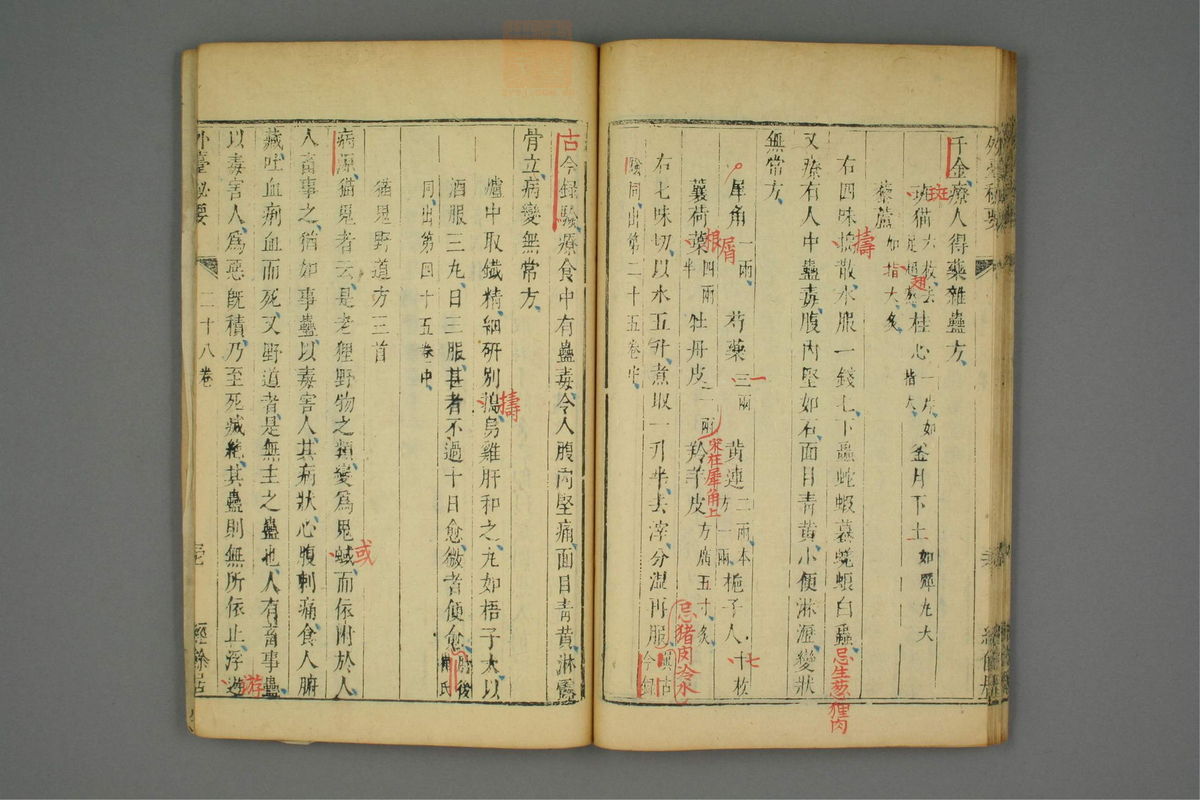 千金療人得藥雜蠱方
斑猫六枚去足翅熬桂心一片如指大釜月下土如彈丸大
藜蘆如指大炙
右四味擣散水服一錢匕下蟲蛇蝦蟇蜣蜋白蟲忌生葱狸肉
又療有人中蠱毒腹内堅如石面目青黄小便淋瀝變狀
無常方
犀角屑一兩芍藥三兩一黄連二兩本方一兩梔子人十枚七
蘘荷葉根四兩半牡丹皮一兩宋在犀角上羚羊皮方廣五寸炙
右七味切以水五升煮取一升半去滓分温再服忌猪肉冷水古今録
驗同出第二十五卷中
古今録驗療食中有蠱毒令人腹内堅痛面目青黄淋露
骨立病變無常方
爐中取鐵精細研别擣烏雞肝和之丸如梧子大以
酒服三丸日三服甚者不過十日愈微者便愈肘後
同出第四十五卷中
猫鬼野道方三首
病源猫鬼者云是老狸野物之類變爲鬼蜮或而依附於人
人畜事之猶如事蠱以毒害人其病狀心腹刺痛食人腑
藏吐血痢血而死又野道者是無主之蠱也人有畜事蠱
以毒害人爲惡旣積乃至死滅絶其蠱則無所依止浮遊游
外臺秘要
二十八卷
經餘居